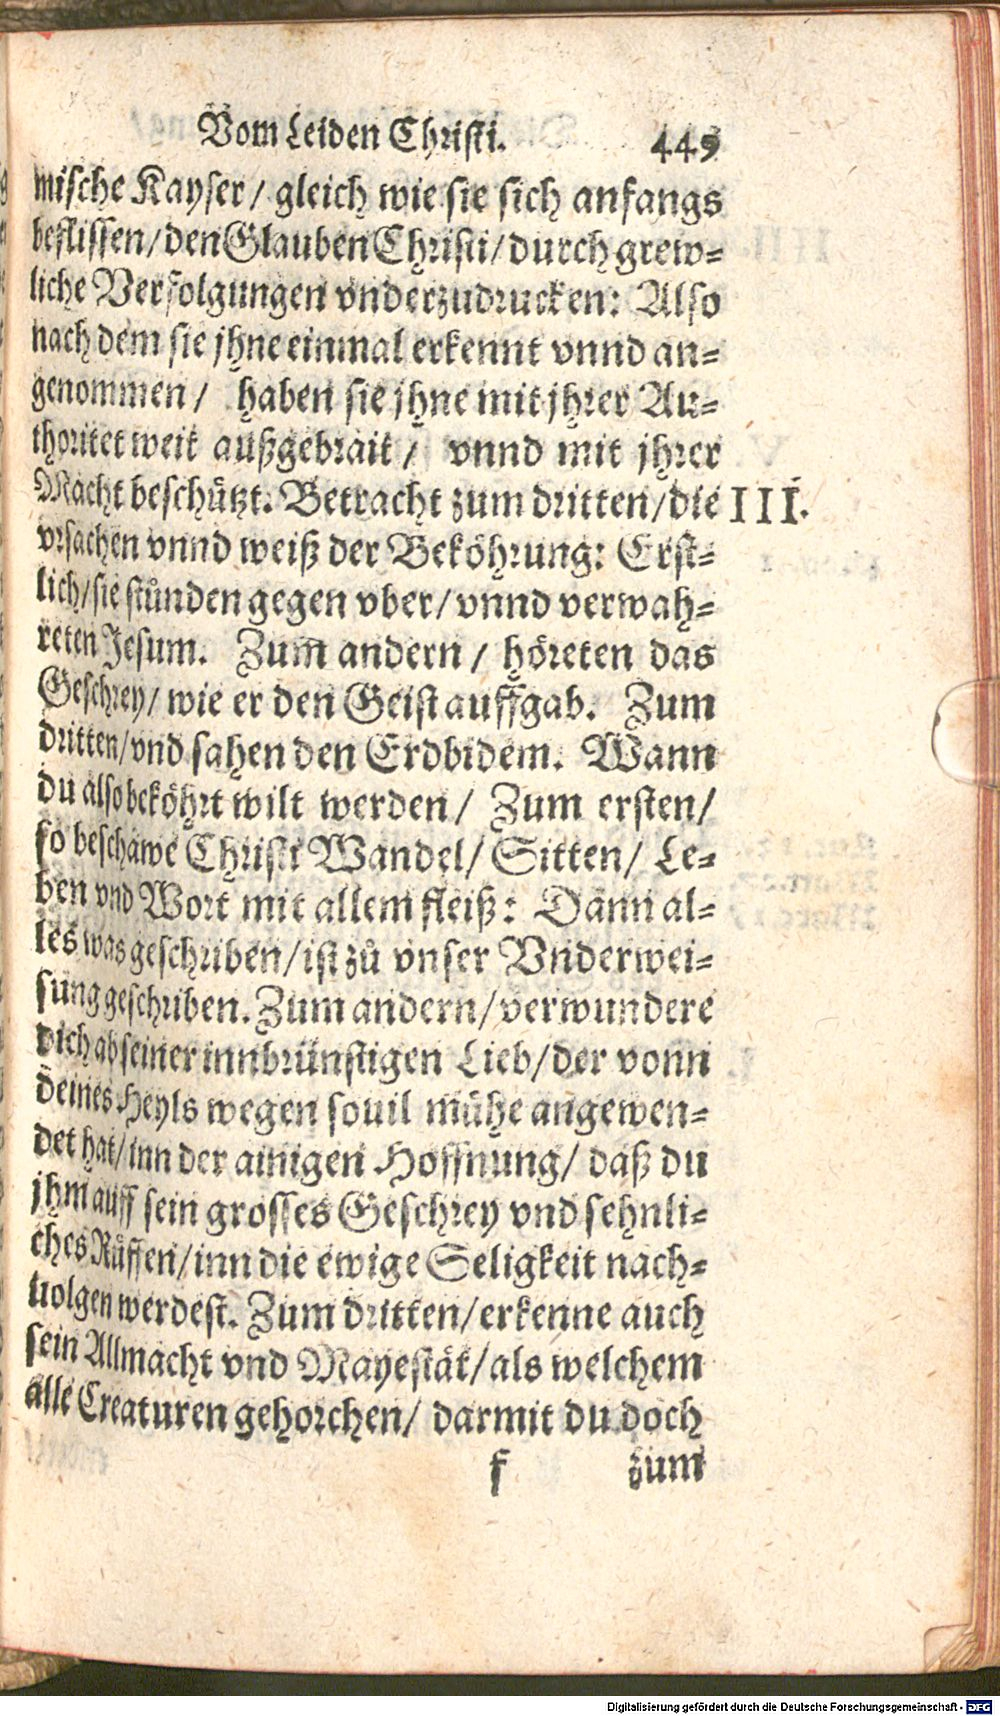 Vom Leiden Christi. 449
mische Kayser / gleich wie sie sich anfangs
beflissen / den Glauben Christi / durch grew⸗
liche Verfolgungen vnderzudrucken: Also
nach dem sie jhne einmal erkennt vnnd an⸗
genommen / haben sie jhne mit jhrer Au⸗
thoritet weit außgebrait / vnnd mit jhrer
Macht beschützt. Betracht zum dritten / die III.
vrsachen vnnd weiß der Beköhrung: Erst⸗
lich / sie stůnden gegen vber / vnnd verwah⸗
reten Jesum. Zum andern / höreten das
Geschrey / wie er den Geist auffgab. Zum
dritten / vnd sahen den Erdbidem. Wann
du also beköhrt wilt werden / Zum ersten /
so beschawe Christi Wandel / Sitten / Le⸗
ben vnd Wort mit allem fleiß: Dann al⸗
les was geschriben / ist zů vnser Vnderwei⸗
sung geschriben. Zum andern / verwundere
dich ab seiner innbrünstigen Lieb / der vonn
deines Heyls wegen souil mühe angewen⸗
det hat / inn der ainigen Hoffnung / daß du
jhm auff sein grosses Geschrey vnd sehnli⸗
ches Růffen / inn die ewige Seligkeit nach⸗
uolgen werdest. Zum dritten / erkenne auch
sein Allmacht vnd Mayestät / als welchem
alle Creaturen gehorchen / darmit du doch
f zum
Digitalisierung gefördert durch die Deutsche Forschungsgemeinschaft - DFG